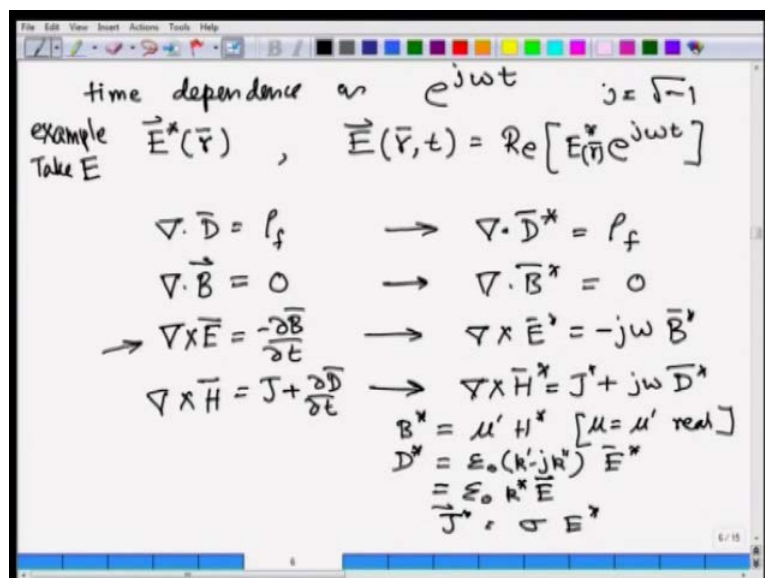 File Edit View Insert Actions Tools Help
time dependence as e^{jωt} j = √-1
example E⃗*(r̄) , E⃗(r̄,t) = Re[E*(r̄) e^{jωt}]
Take E
∇·D̄ = ρ_f → ∇·D̄* = ρ_f
∇·B⃗ = 0 → ∇·B̄* = 0
→ ∇×Ē = -∂B̄/∂t → ∇×Ē* = -jω B̄*
∇×H̄ = J̄ + ∂D̄/∂t → ∇×H̄* = J* + jω D̄*
B* = μ' H* [μ = μ' real]
D* = ε₀(k'-jk'') Ē*
= ε₀ k* Ē
J⃗* = σ E*
6/15
6